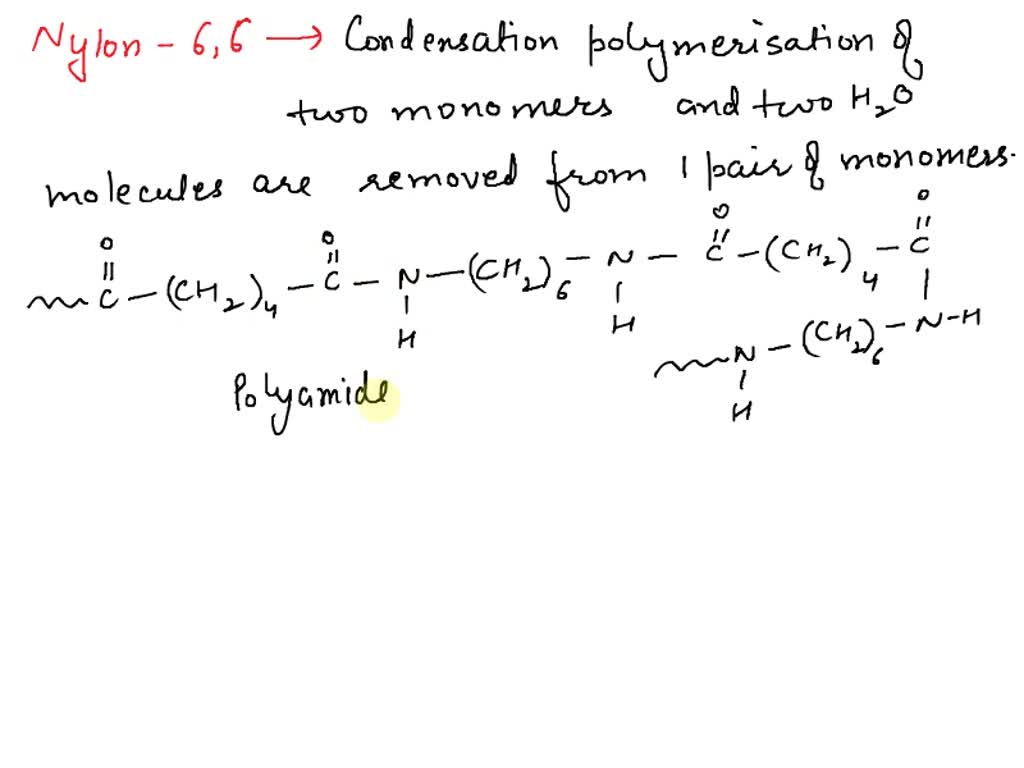 Nylon - 6,6 → Condensation polymerisation of
two monomers and two H₂O
molecules are removed from 1 pair of monomers.
O O O O
|| || || ||
C - (CH₂)₄ - C - N - (CH₂)₆ - N - C - (CH₂)₄ - C
| | |
H H N - (CH₂)₆ - N - H
|
H
Polyamide